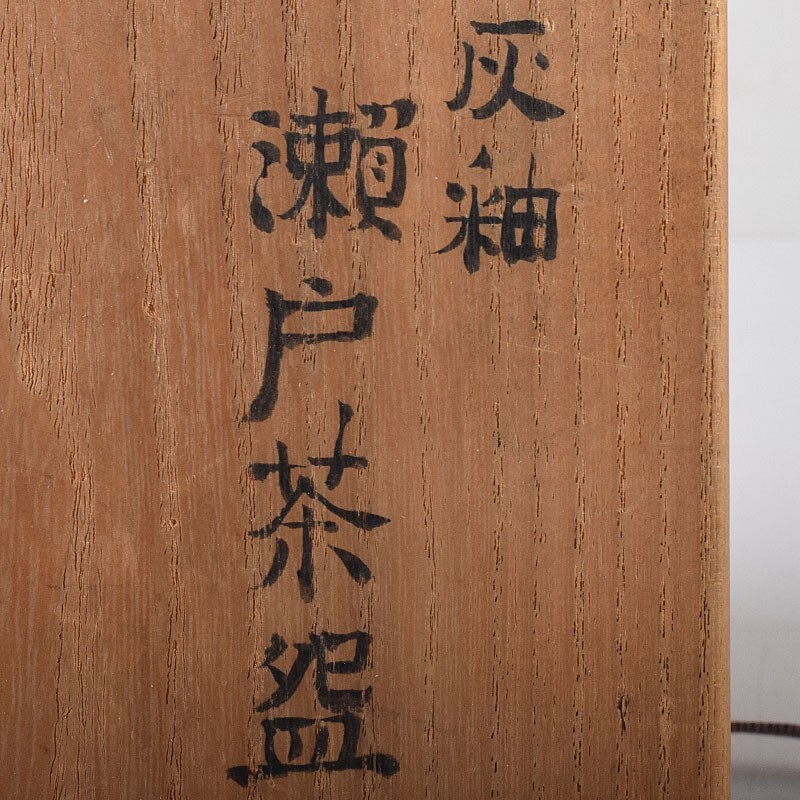 灰釉
瀬戸茶盌